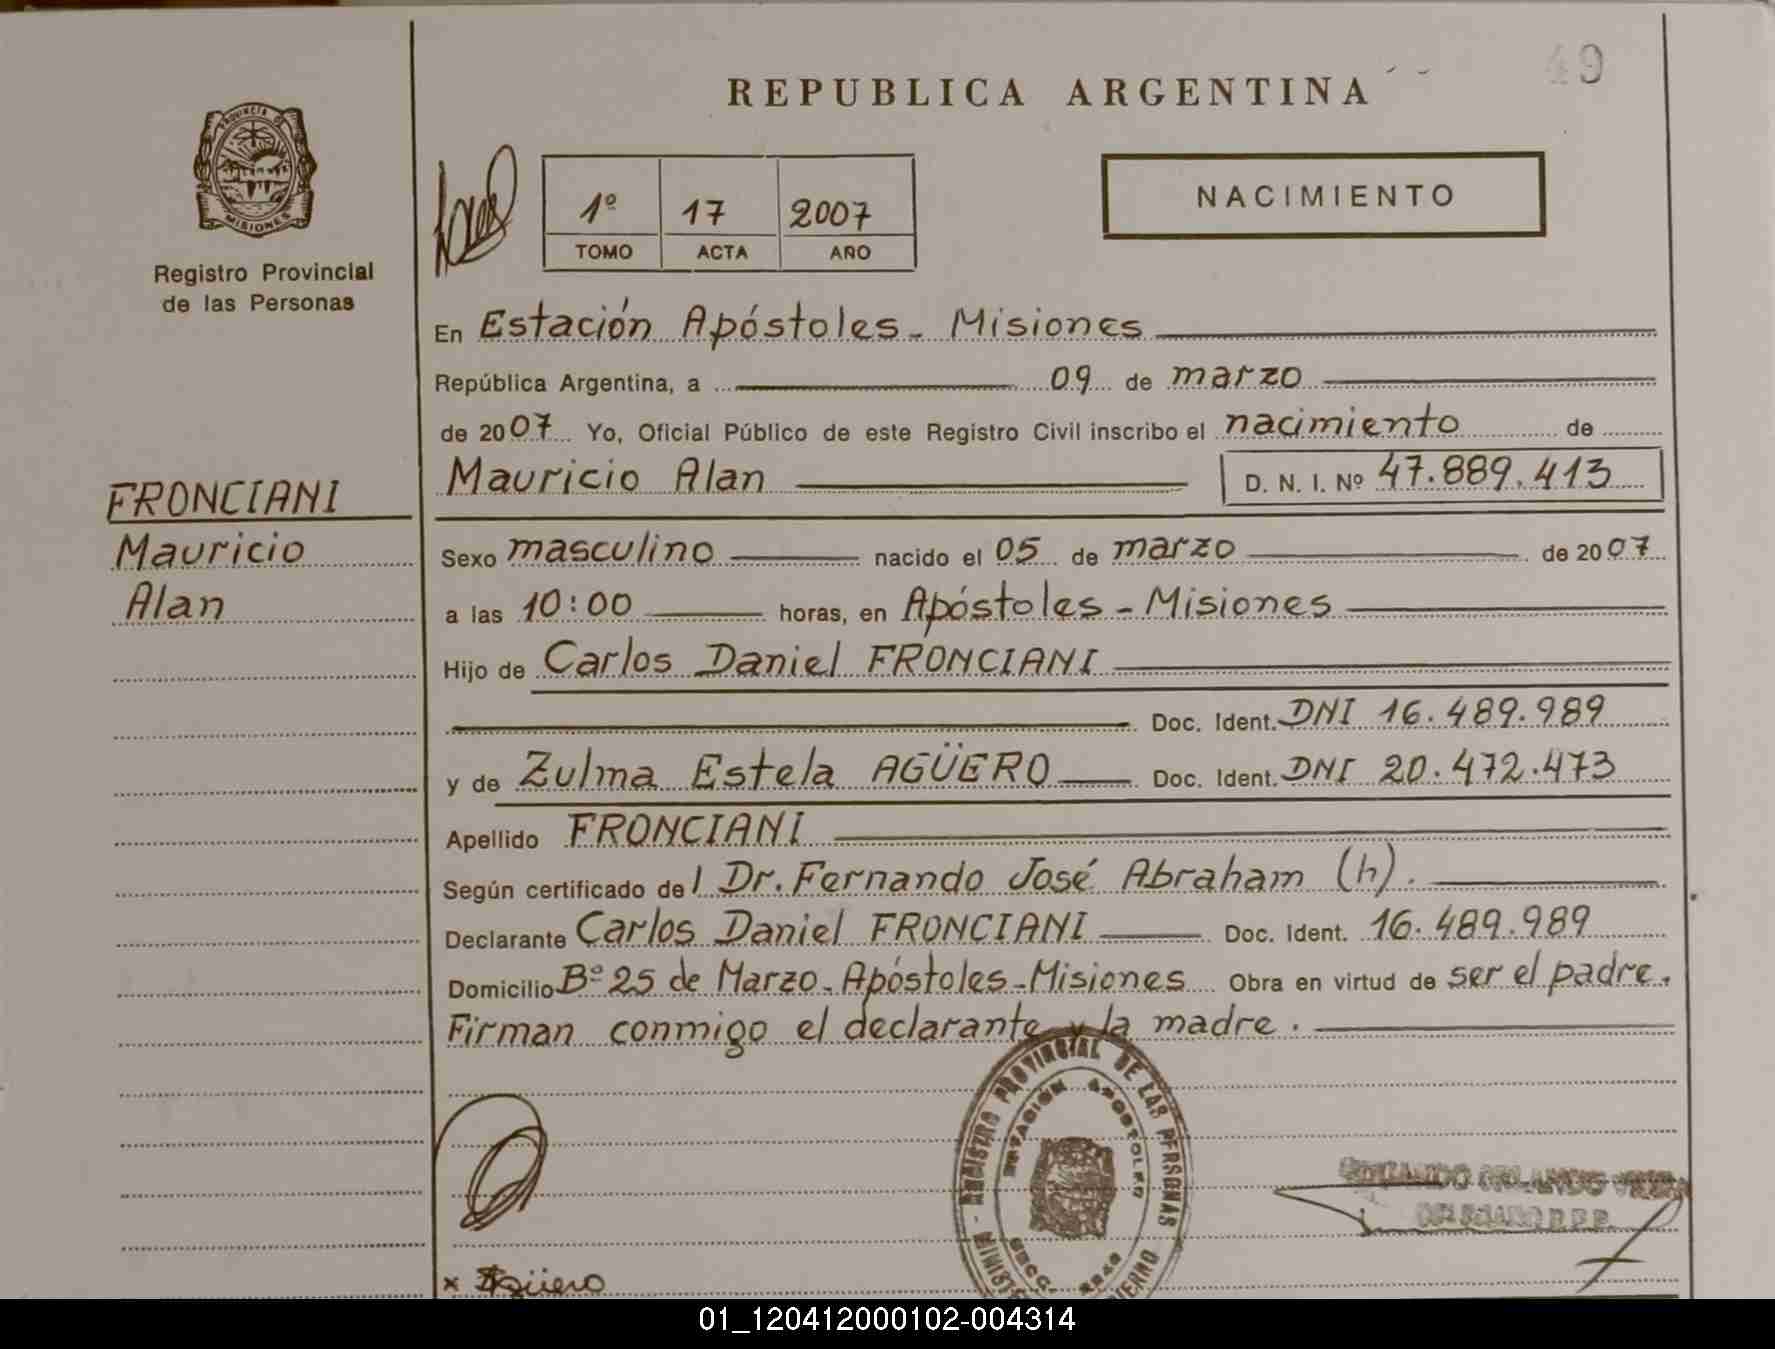 49
REPUBLICA ARGENTINA
PROVINCIA DE
MISIONES
Registro Provincial
de las Personas
1º 17 2007
TOMO ACTA AÑO
NACIMIENTO
En Estación Apóstoles - Misiones
República Argentina, a 09 de marzo
de 2007 Yo, Oficial Público de este Registro Civil inscribo el nacimiento de
Mauricio Alan D. N. I. Nº 47.889.413
FRONCIANI
Mauricio
Alan
Sexo masculino nacido el 05 de marzo de 2007
a las 10:00 horas, en Apóstoles - Misiones
Hijo de Carlos Daniel FRONCIANI
Doc. Ident. DNI 16.489.989
y de Zulma Estela AGÜERO Doc. Ident. DNI 20.472.473
Apellido FRONCIANI
Según certificado del Dr. Fernando José Abraham (h).
Declarante Carlos Daniel FRONCIANI Doc. Ident. 16.489.989
Domicilio Bº 25 de Marzo - Apóstoles - Misiones Obra en virtud de ser el padre.
Firman conmigo el declarante y la madre.
REGISTRO PROVINCIAL DE LAS PERSONAS
ESTACIÓN APOSTOLES
x Agüero
01_120412000102-004314